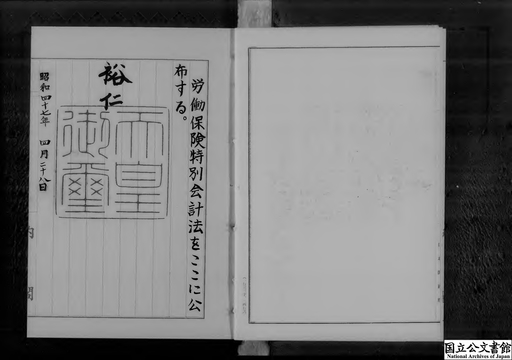 労働保険特別会計法をここに公
布する。
裕仁
天皇
御璽
昭和四十七年 四月二十八日
内閣
国立公文書館
National Archives of Japan